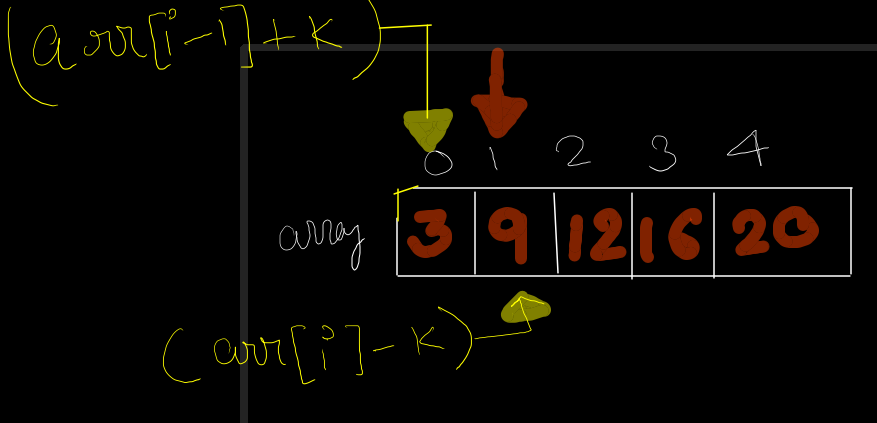 (arr[i-1]+K)
0 1 2 3 4
array 3 9 12 16 20
(arr[i]-K)